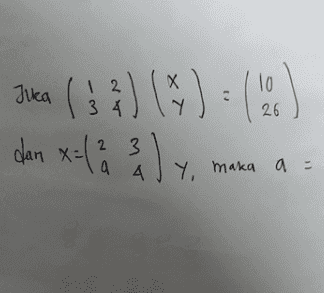 Jika (1 2 3 4) (x y) = (10 26)
dan x = (2 3 a 4) y, maka a =